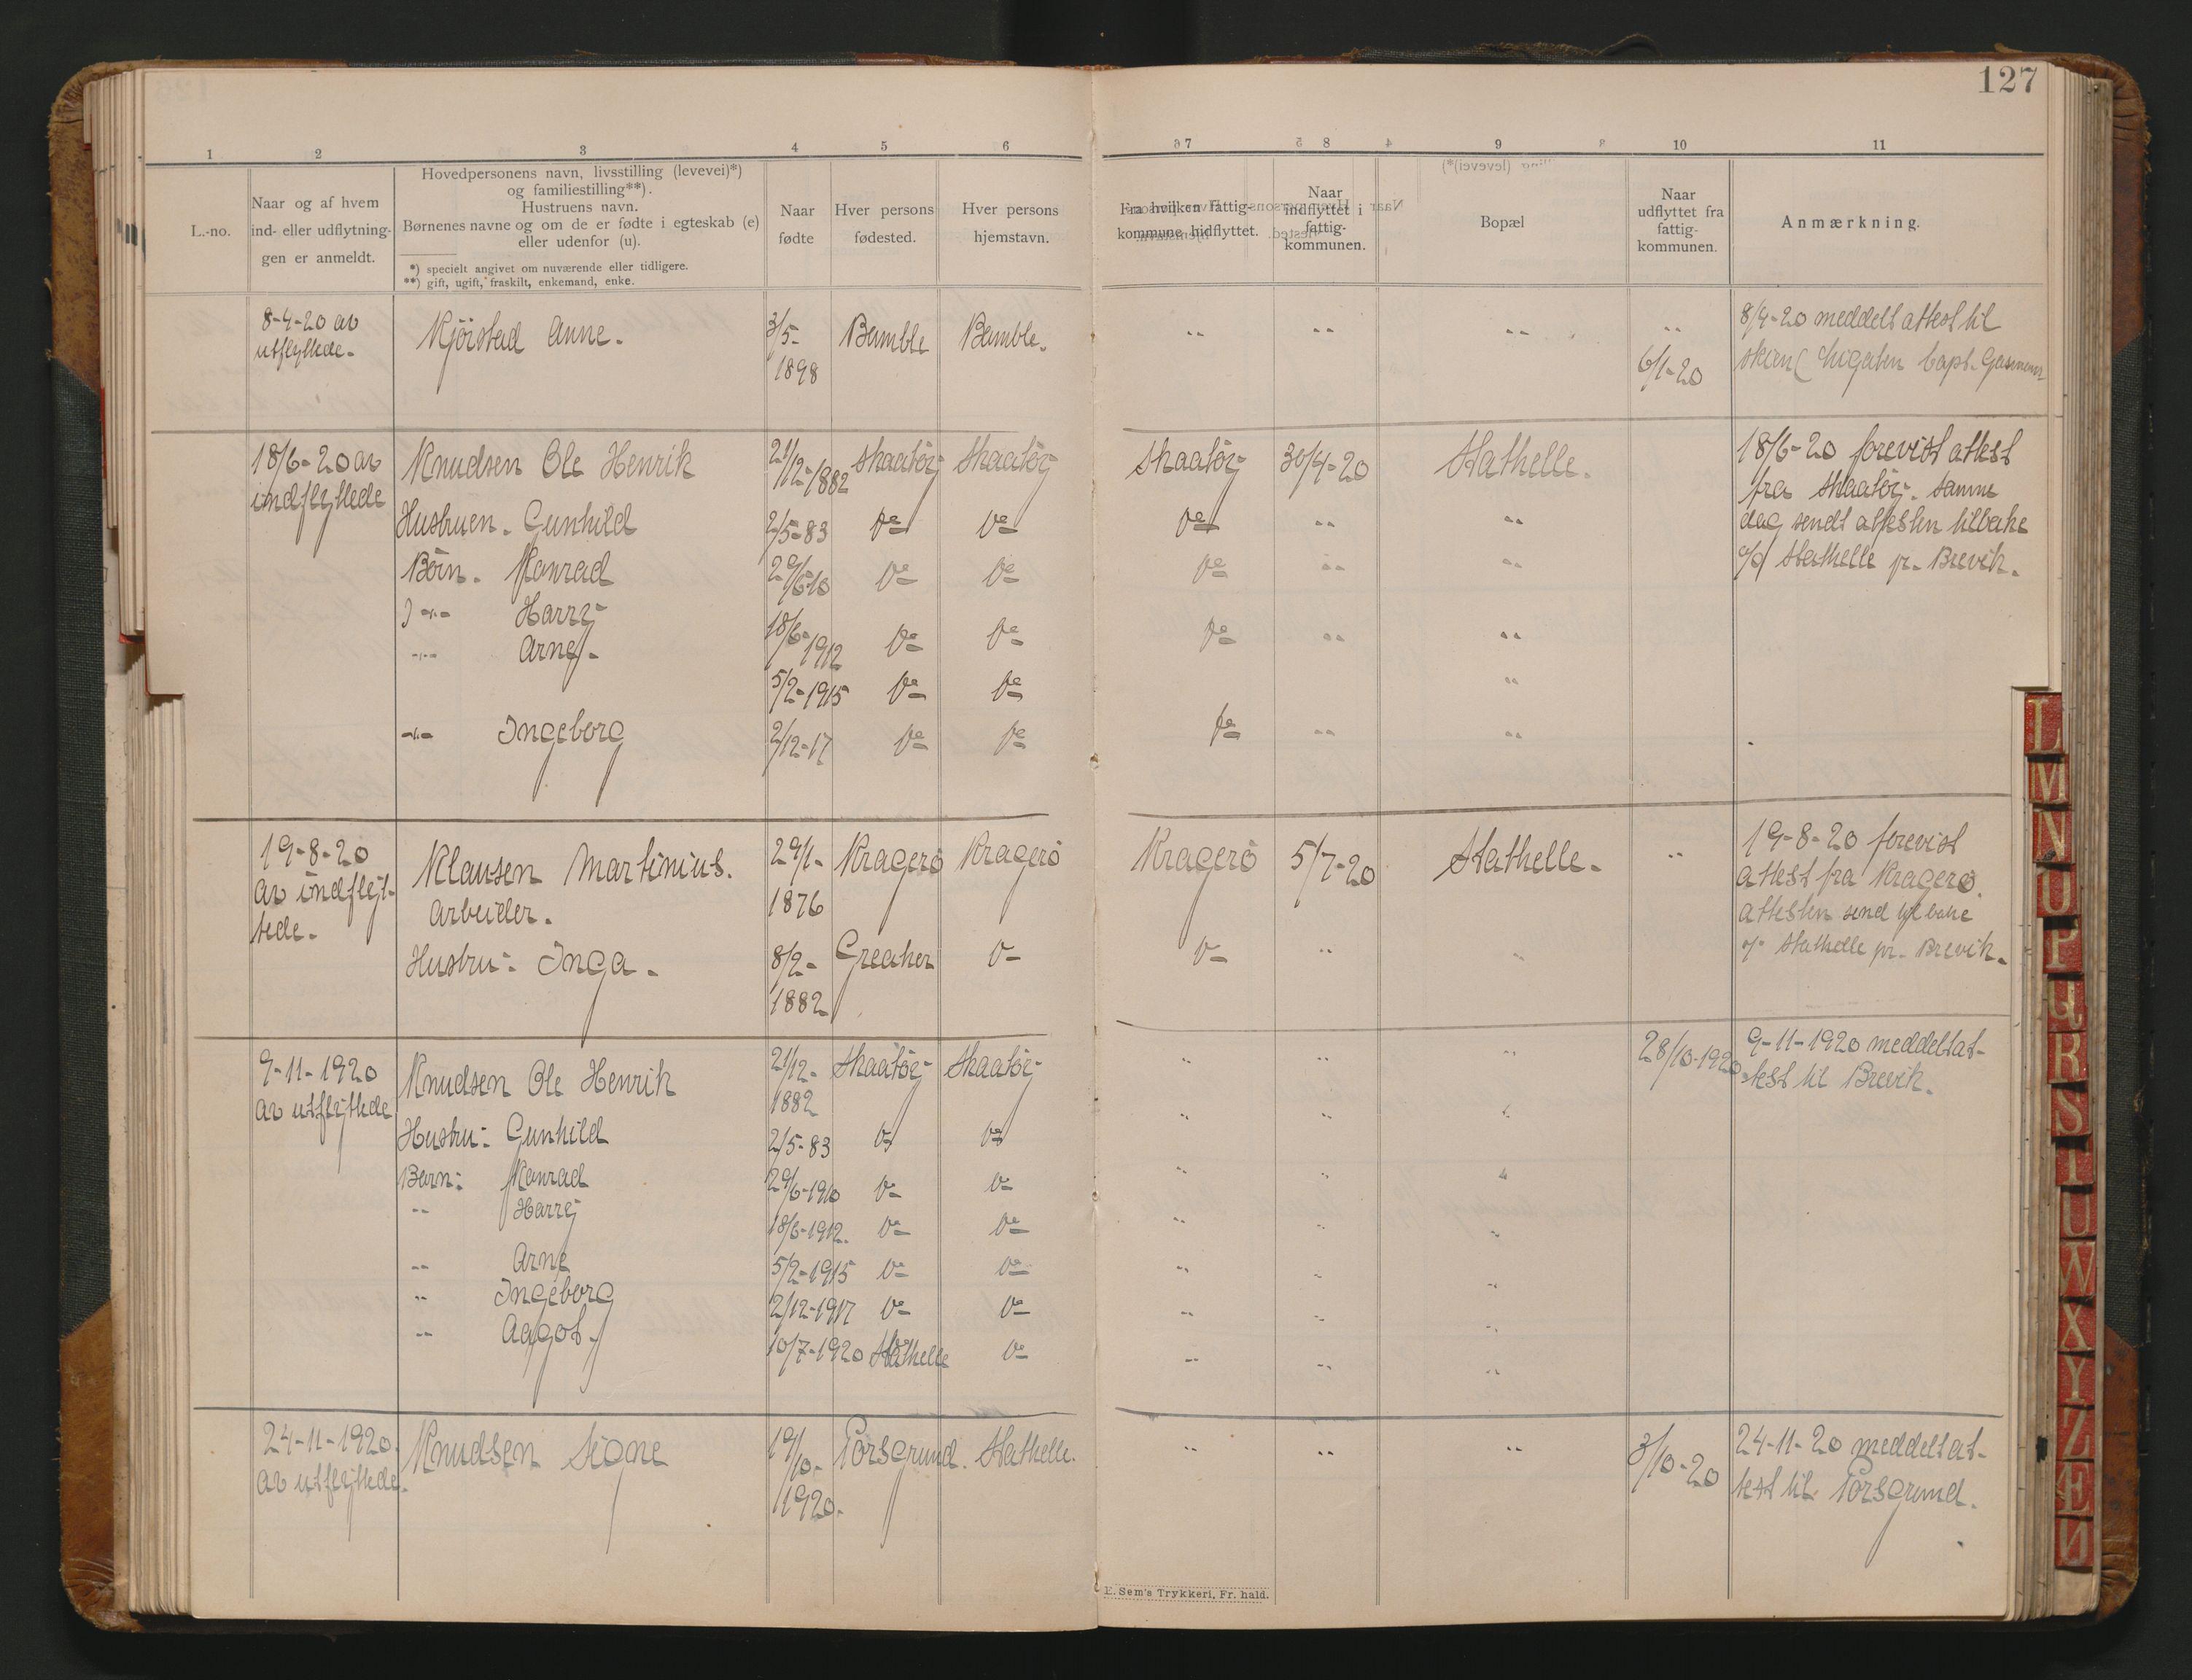 127
1 2 3 4 5 6 7 8 9 10 11
L.-no.
Naar og af hvem
ind- eller udflytnin-
gen er anmeldt.
Hovedpersonens navn, livsstilling (levevei)*)
og familiestilling**).
Hustruens navn.
Børnenes navne og om de er fødte i egteskab (e)
eller udenfor (u).
*) specielt angivet om nuværende eller tidligere.
**) gift, ugift, fraskilt, enkemand, enke.
Naar
fødte
Hver persons
fødested.
Hver persons
hjemstavn.
Fra hvilken fattig-
kommune hidflyttet.
Naar
indflyttet i
fattig-
kommunen.
Bopæl
Naar
udflyttet fra
fattig-
kommunen.
Anmærkning.
8-4-20 av Kjörstad Anne. 3/5- Bamble Bamble. " " " " 8/4-20 meddelt attest til
utflyttede. 1898 6/1-20 Skien
18/6-20 av Knudsen Ole Henrik 21/12-1882 Skaatöy Skaatöy Skaatöy 30/4-20 Stathelle. 18/6-20 forevist attest
indflyttede fra Skaatöy. Samme
Hustruen. Gunhild 2/5-83 Do Do Do " " dag sendt attesten tilbake
Börn. Konrad 29/6-10 Do Do Do " " Stathelle pr. Brevik.
-"- Harry 18/6-1912 Do Do Do " "
-"- Arne. 5/2-1915 Do Do "
-"- Ingeborg 2/12-17 Do Do Do " "
19-8-20 Klausen Martinius. 29/1- Kragerö Kragerö Kragerö 5/7-20 Stathelle. " 19-8-20 forevist
av indflyt- Arbeider. 1876 attest fra Kragerö.
tede. attesten send tilbake
Hustru: Inga. 8/2- Greaker Do Do " " Stathelle pr. Brevik.
1882
9-11-1920 Knudsen Ole Henrik 21/12- Skaatöy Skaatöy " " " 28/10-1920 9-11-1920 meddelt at-
av utflyttede 1882 test til Brevik.
Hustru: Gunhild 2/5-83 Do Do " " "
Barn: Konrad 29/6-1910 Do Do " " "
" Harry 18/6-1912. Do Do " " "
" Arne 5/2-1915 Do Do " " "
" Ingeborg 2/12-1917 Do Do " " "
" Aagot. 10/7-1920 Stathelle Do " " "
24-11-1920. Knudsen Signe 19/10- Porsgrund. Stathelle. " " " 3/10-20 24-11-20 meddelt at-
av utflyttede. 1920. test til Porsgrund.
E. Sem's Trykkeri, Fr. hald.
L
M
N
O
P
Q
R
S
T
U
W
X
Y
Z
Æ